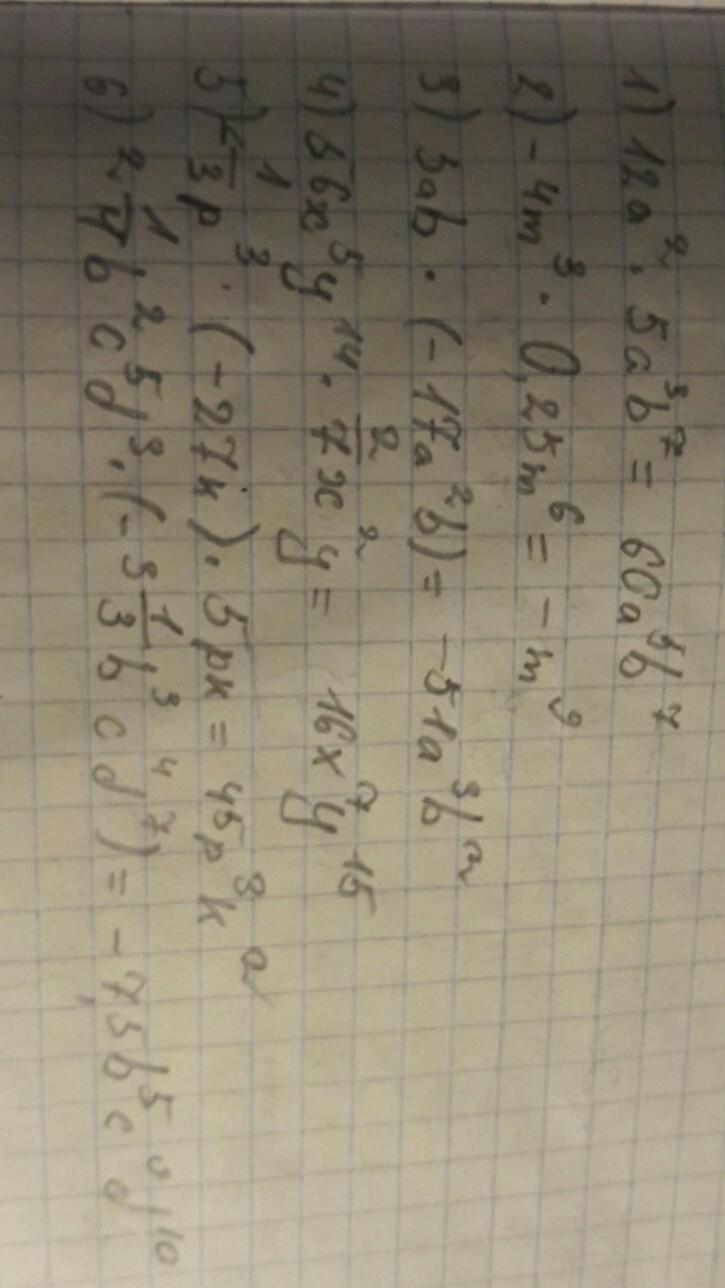 1) 12a² · 5a³b⁷ = 60a⁵b⁷
2) -4m³ · 0,25m⁶ = -m⁹
3) 3ab · (-17a²b) = -51a³b²
4) 56x⁵y¹⁴ · 2/7 x²y = 16x⁷y¹⁵
5) 1/3 p³ · (-27k) · 5pk = 45p k²
6) 2 1/4 b²c⁵d³ · (-3 1/3 b³c⁴d⁷) = -7,5b⁵c⁹d¹⁰